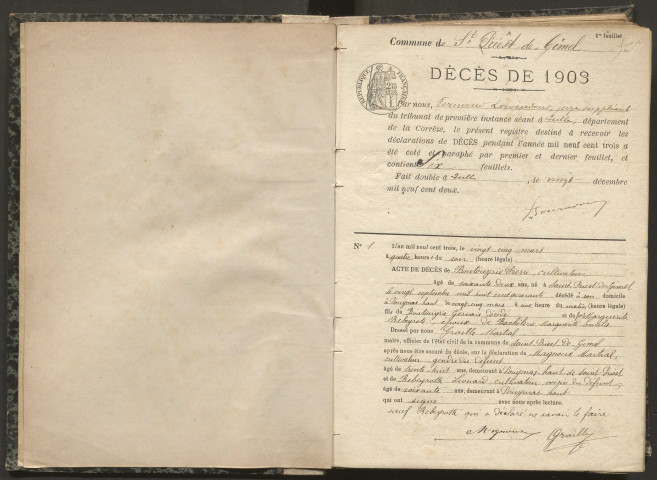 1er feuillet
Commune de St Priest de Gimel
DÉCÈS DE 1903
RÉPUBLIQUE FRANÇAISE
Par nous, juge suppléant
du tribunal de première instance séant à Tulle, département
de la Corrèze, le présent registre destiné à recevoir les
déclarations de DÉCÈS pendant l'année mil neuf cent trois a
été coté et paraphé par premier et dernier feuillet, et
contient six feuillets.
Fait double à Tulle, le vingt décembre
mil neuf cent deux.
N° 1 L'an mil neuf cent trois, le vingt cinq mars
à quatre heures du soir (heure légale)
ACTE DE DÉCÈS de Pierre, cultivateur
âgé de soixante deux ans, né à Saint Priest de Gimel
le vingt septembre mil huit cent quarante décédé à son domicile
à haut le vingt cinq mars à heure du matin (heure légale)
fils de Gervais décédé et de Marguerite
époux de Marguerite
Dressé par nous Graille Martial
maire, officier de l'état civil de la commune de Saint Priest de Gimel
après nous être assuré du décès, sur la déclaration de Magnoux Martial,
cultivateur gendre du défunt
âgé de trente huit ans, demeurant à haut de Saint Priest
et de Léonard, cultivateur voisin du défunt,
âgé de soixante ans, demeurant à haut
qui ont signé avec nous après lecture.
sauf qui a déclaré ne savoir le faire
Magnoux Graille